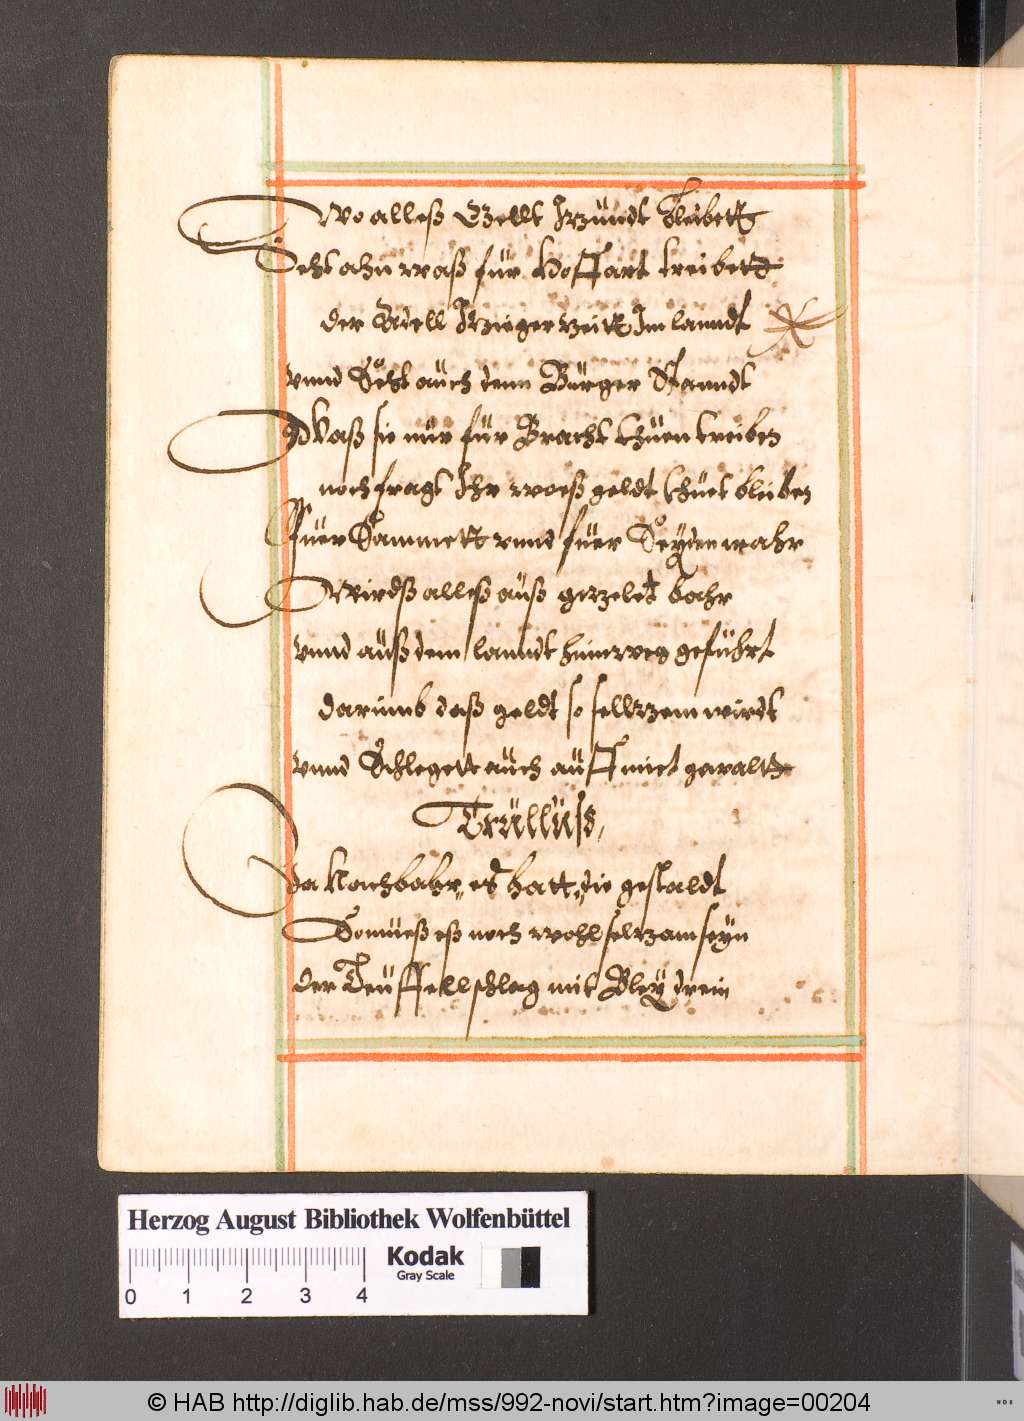 Wo alleß Gellt Itzundt bleibett
Seht ahn waß für Hoffart treibett
der Adell Itziger Zeitt Im lanndt
vnnd Seht auch denn Bürger Stanndt
Waß sie nur für Pracht thuen treiben
noch fragt Ihr woeß geldt thuet bleiben
Fuer Sammett vnnd fuer Seyden wahr
Wirdß alleß auß gezelet bahr
vnnd auß dem lanndt hinweg geführt
darumb daß geldt so selltzam wirdt
vnnd Schlegett auch auff mit gewaltt
Trulluß,
Ja Nachbahr, es hatt, die gestaldt
So mueß eß noch wohl seltzam seyn
der Teuffell schlag mit Bley drein
Herzog August Bibliothek Wolfenbüttel
Kodak
Gray Scale
0 1 2 3 4
© HAB http://diglib.hab.de/mss/992-novi/start.htm?image=00204